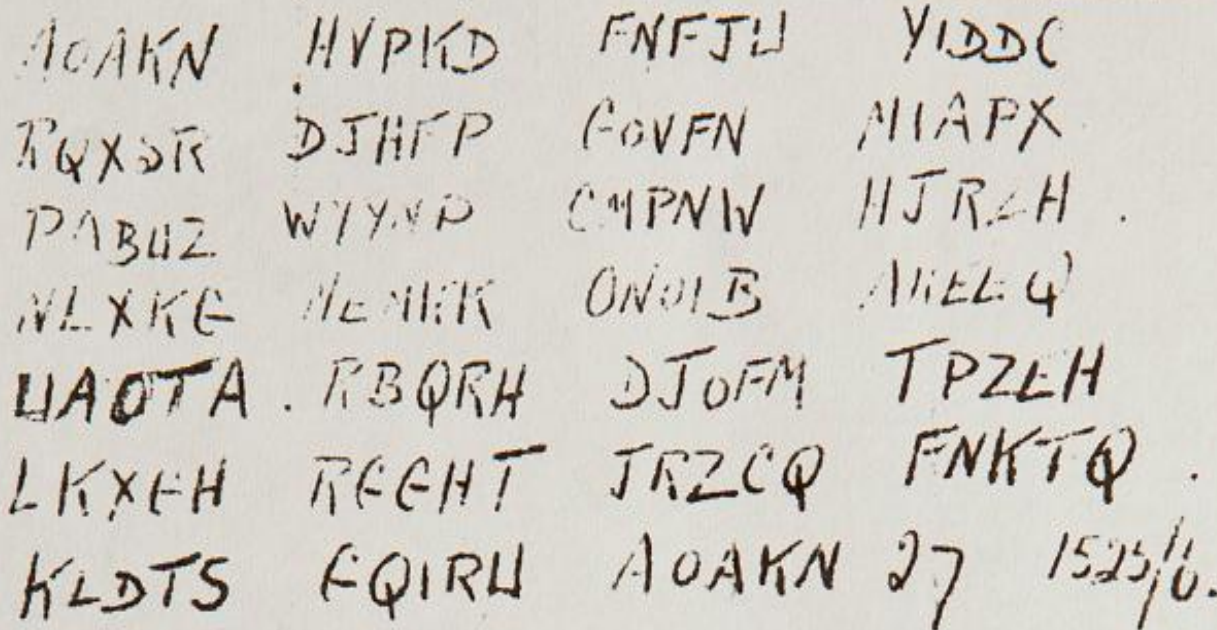 AOAKN HVPKD FNFJU YIDDC
RQXSR DJHFP GOVFN MIAPX
PABUZ WYYNP CMPNW HJRZH
NLXKG MEMKK ONOIB AKEEQ
UAOTA RBQRH DJOFM TPZEH
LKXGH RGGHT JRZCQ FNKTQ
KLDTS GQIRU AOAKN 27 1525/6.